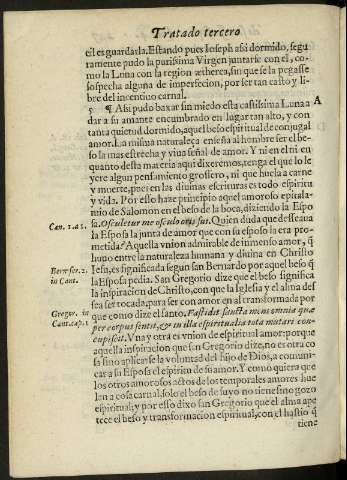 Tratado tercero
est es guardarla. Estando pues Ioseph asi dormido, segu
ramente pudo la purissima Virgen juntarse con el, co-
mo la Luna con la region ætherea, sin que se la pegasse
sospecha alguna de imperfecion, por ser tan casto y li-
bre del incentiuo carnal.
5 ¶ Asi pudo baxar sin miedo esta castissima Luna a
A
dar a su amante encumbrado en lugar tan alto, y con
tanta quietud dormido, aquel beso espiritual de conjugal
amor. La misma naturaleça enseña al hombre ser el be-
so la mas estrecha y viua señal de amor. Y ni en el ni en
quanto desta materia aqui diremos, tenga el que lo le
yere algun pensamiento grossero, ni que huela a carne
y muerte, pues en las diuinas escrituras es todo espiritu
y vida. Por esso haze principio aquel amoroso epitala-
mio de Salomon en el beso de la boca, diziendo la Espo
Can. 1.a 1.
sa. Osculetur me osculo oris sui. Quien duda que desseaua
la Esposa la junta de amor que con su esposo la era pro-
metida? Aquella vnion admirable de inmenso amor, q̃
huuo entre la naturaleza humana y diuina en Christo
Ber. ser. 2.
in Cant.
Iesus, es significada segun san Bernardo por aquel beso q̃
la Esposa pedia. San Gregorio dize que el beso significa
la inspiracion de Christo, con que la Iglesia y el alma des
sea ser tocada, para ser con amor en al transformada por
Gregor. in
Cant. cap. 1
que como dize el santo. Fastidit sancta mens omnia quæ
per corpus sentit, & in illa espiritualia tota mutari con-
cupiscit. Vna y otra es vnion de espiritual amor: porque
aquella inspiracion que san Gregorio dize, no es otra co
sa sino aplicarse la voluntad del hijo de Dios, a comuni-
car a su Esposa el espiritu de su amor. Y como quiera que
los otros amorosos actos de los temporales amores hue
lan a cosa carnal, solo el beso de suyo no tiene sino gozo
espiritual: y por esso dixo san Gregorio que el alma ape
tece el beso y transformacion espiritual, con el hastio q̃
tiene